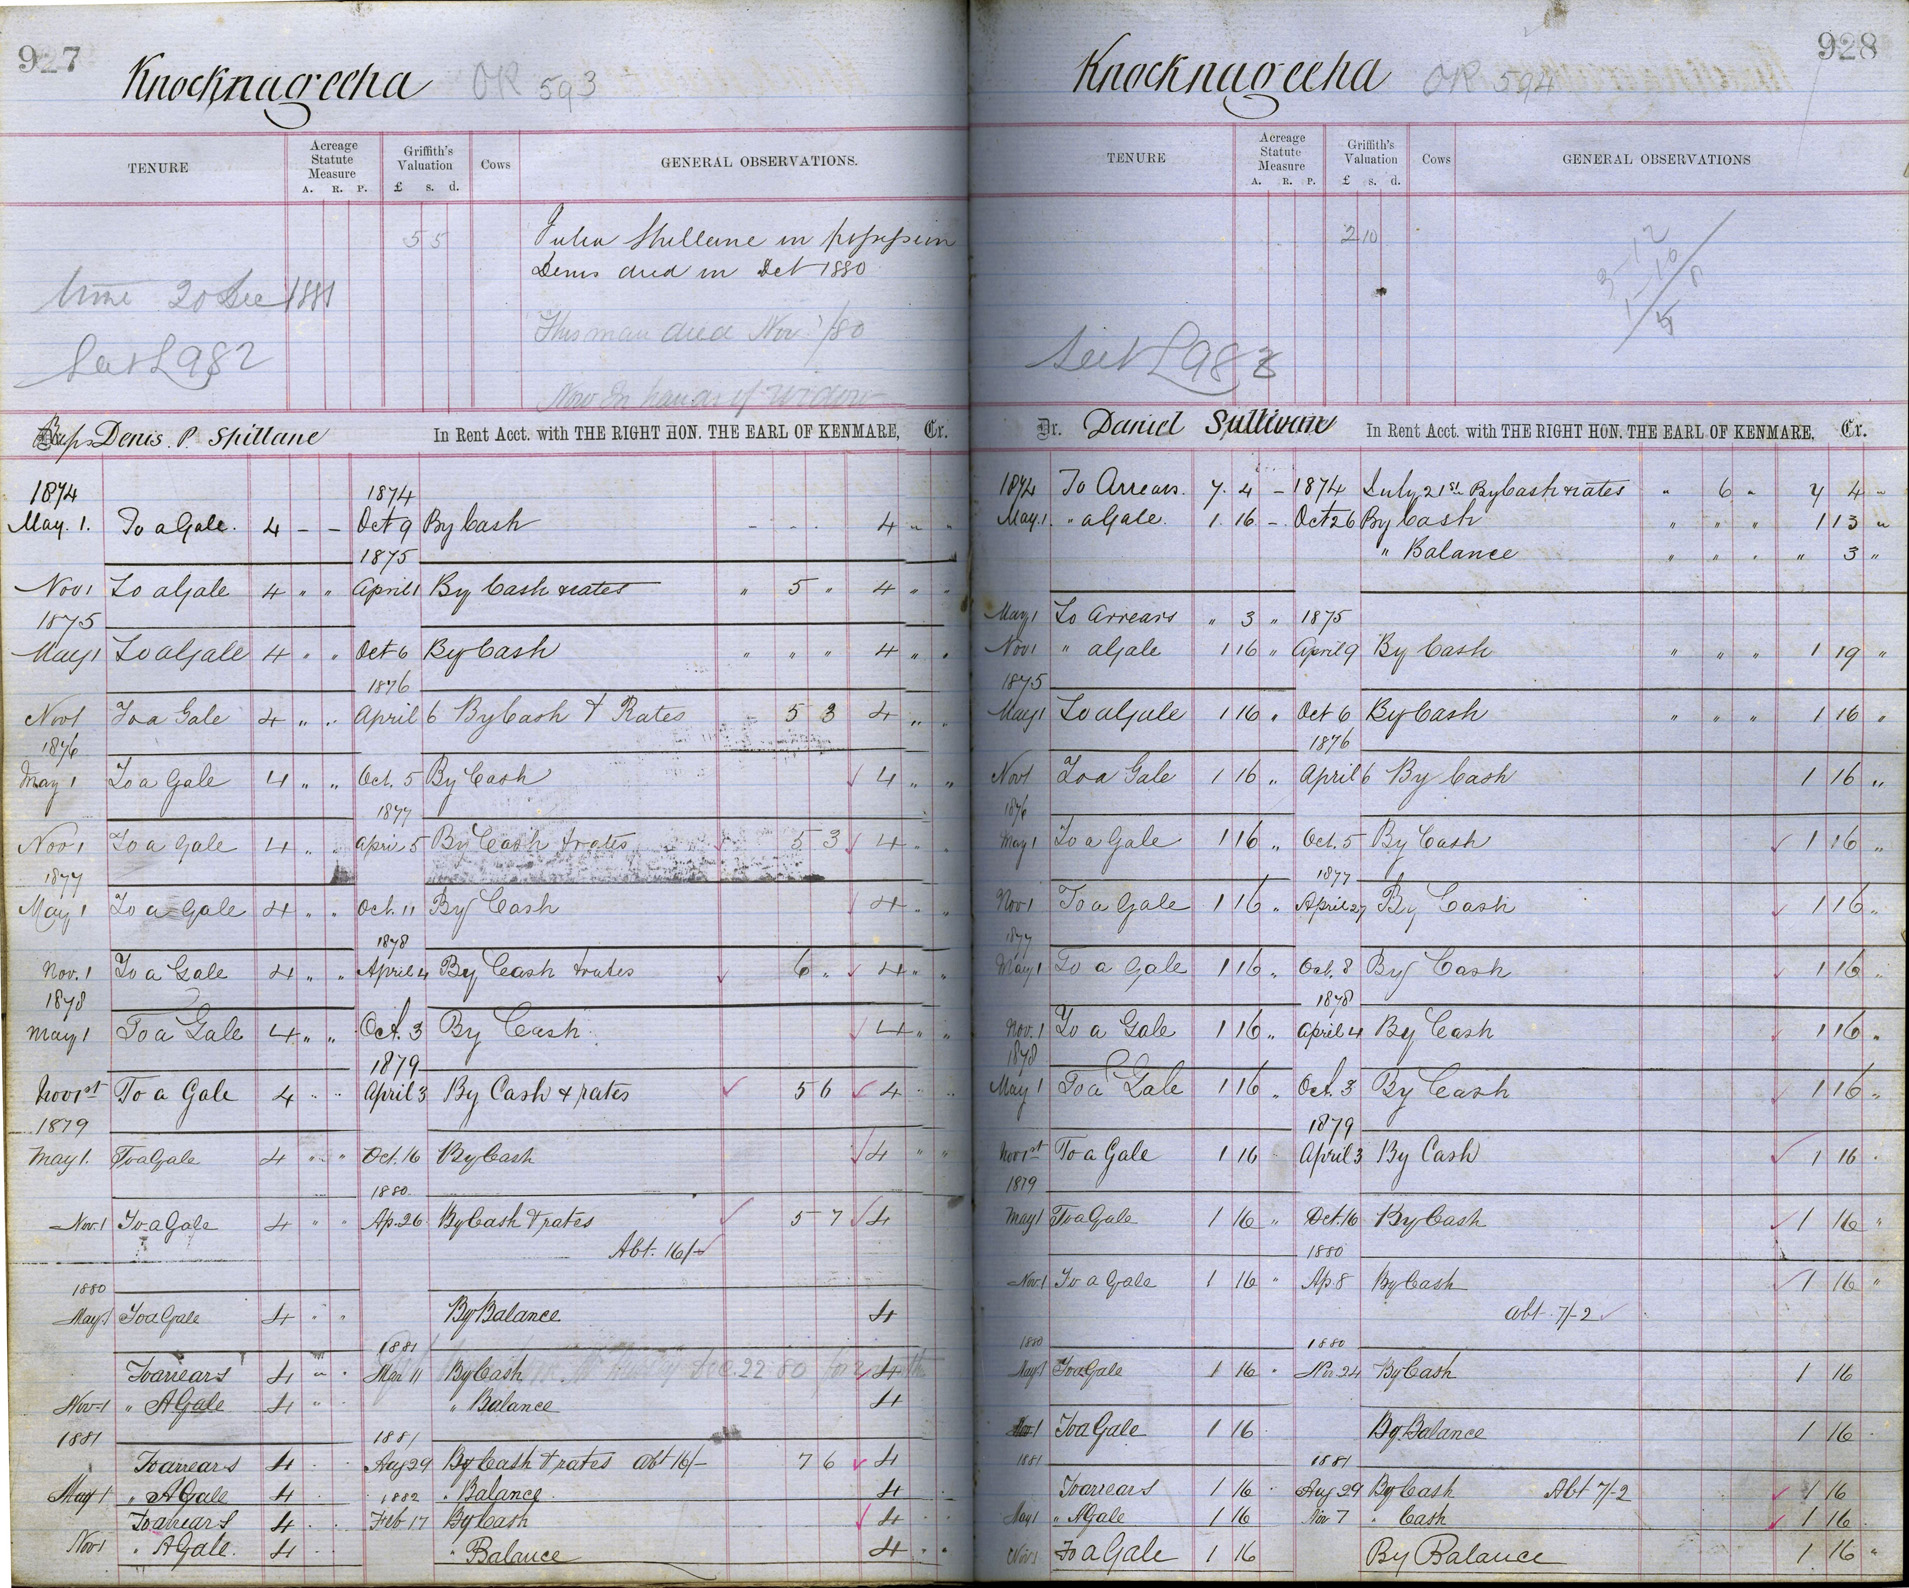 927
Knocknageeha OR 593
TENURE
Acreage Statute Measure
A. R. P.
Griffith's Valuation
£ s. d.
Cows
GENERAL OBSERVATIONS.
5 5
Julia Spillane in possession
Denis died in Oct 1880
20 Dec 1881
This man died Nov. /80
See L 982
Now in hands of Widow
Reps Denis. P. Spillane In Rent Acct. with THE RIGHT HON. THE EARL OF KENMARE, Cr.
1874 1874
May. 1. To a Gale. 4 - - Oct 9 By Cash - - - 4 " "
1875
Nov 1 To a Gale 4 " " April 1 By Cash & rates " 5 " 4 " "
1875
May 1 To a Gale 4 " " Oct 6 By Cash " " " 4 " "
1876
Nov 1 To a Gale 4 " " April 6 By Cash & Rates 5 3 4 " "
1876
May 1 To a Gale 4 " " Oct. 5 By Cash 4 " "
1877
Nov 1 To a Gale 4 " " April 5 By Cash & rates 5 3 4 " "
1877
May 1 To a Gale 4 " " Oct. 11 By Cash 4 " "
1878
Nov. 1 To a Gale 4 " " April 4 By Cash & rates 6 " 4 " "
1878
May 1 To a Gale 4 " " Oct. 3 By Cash 4 " "
1879
Nov 1st To a Gale 4 " " April 3 By Cash & rates 5 6 4 " "
1879
May 1. To a Gale 4 " " Oct. 16 By Cash 4 " "
1880
Nov. 1 To a Gale 4 " " Ap. 26 By Cash & rates 5 7 4
Abt. 16/-
1880
May 1 To a Gale 4 " " By Balance 4
1881
To arrears 4 " " Mar 11 By Cash 4
Nov 1 " A Gale 4 " " " Balance 4
1881 1881
To arrears 4 Aug 29 By Cash & rates abt 16/- 7 6 4
May 1 " A Gale 4 1882 " Balance 4
To arrears 4 Feb 17 By Cash 4
Nov 1 " A Gale. 4 " Balance 4 " "
928
Knocknageeha OR 594
TENURE
Acreage Statute Measure
A. R. P.
Griffith's Valuation
£ s. d.
Cows
GENERAL OBSERVATIONS
2 10
3-12
1-10
See L 983
Dr. Daniel Sullivan In Rent Acct. with THE RIGHT HON. THE EARL OF KENMARE. Cr.
1874 To Arrears. 7. 4 - 1874 July 21st By Cash & rates " 6 " 7 4 "
May 1. " a Gale. 1 16 - Oct 26 By Cash " " " 1 13 "
" Balance " " " " 3 "
May 1 To Arrears " 3 " 1875
Nov 1 " a Gale 1 16 " April 9 By Cash " " " 1 19 "
1875
May 1 To a Gale 1 16 " Oct 6 By Cash " " " 1 16 "
1876
Nov 1 To a Gale 1 16 " April 6 By Cash 1 16 "
1876
May 1 To a Gale 1 16 " Oct. 5 By Cash 1 16 "
1877
Nov 1 To a Gale 1 16 " April 27 By Cash 1 16 "
1877
May 1 To a Gale 1 16 " Oct. 8 By Cash 1 16 "
1878
Nov. 1 To a Gale 1 16 " April 4 By Cash 1 16 "
1878
May 1 To a Gale 1 16 " Oct. 3 By Cash 1 16 "
1879
Nov 1st To a Gale 1 16 April 3 By Cash 1 16
1879
May 1 To a Gale 1 16 " Oct. 16 By Cash 1 16 "
1880
Nov 1 To a Gale 1 16 " Ap. 8 By Cash 1 16 "
abt. 7/-2
1880 1880
May 1 To a Gale 1 16 " Nov. 24 By Cash 1 16
Nov 1 To a Gale 1 16 By Balance 1 16
1881 1881
To arrears 1 16 Aug 29 By Cash Abt 7/-2 1 16
May 1 " A Gale 1 16 Nov 7 " Cash 1 16
Nov 1 To a Gale 1 16 By Balance 1 16 "